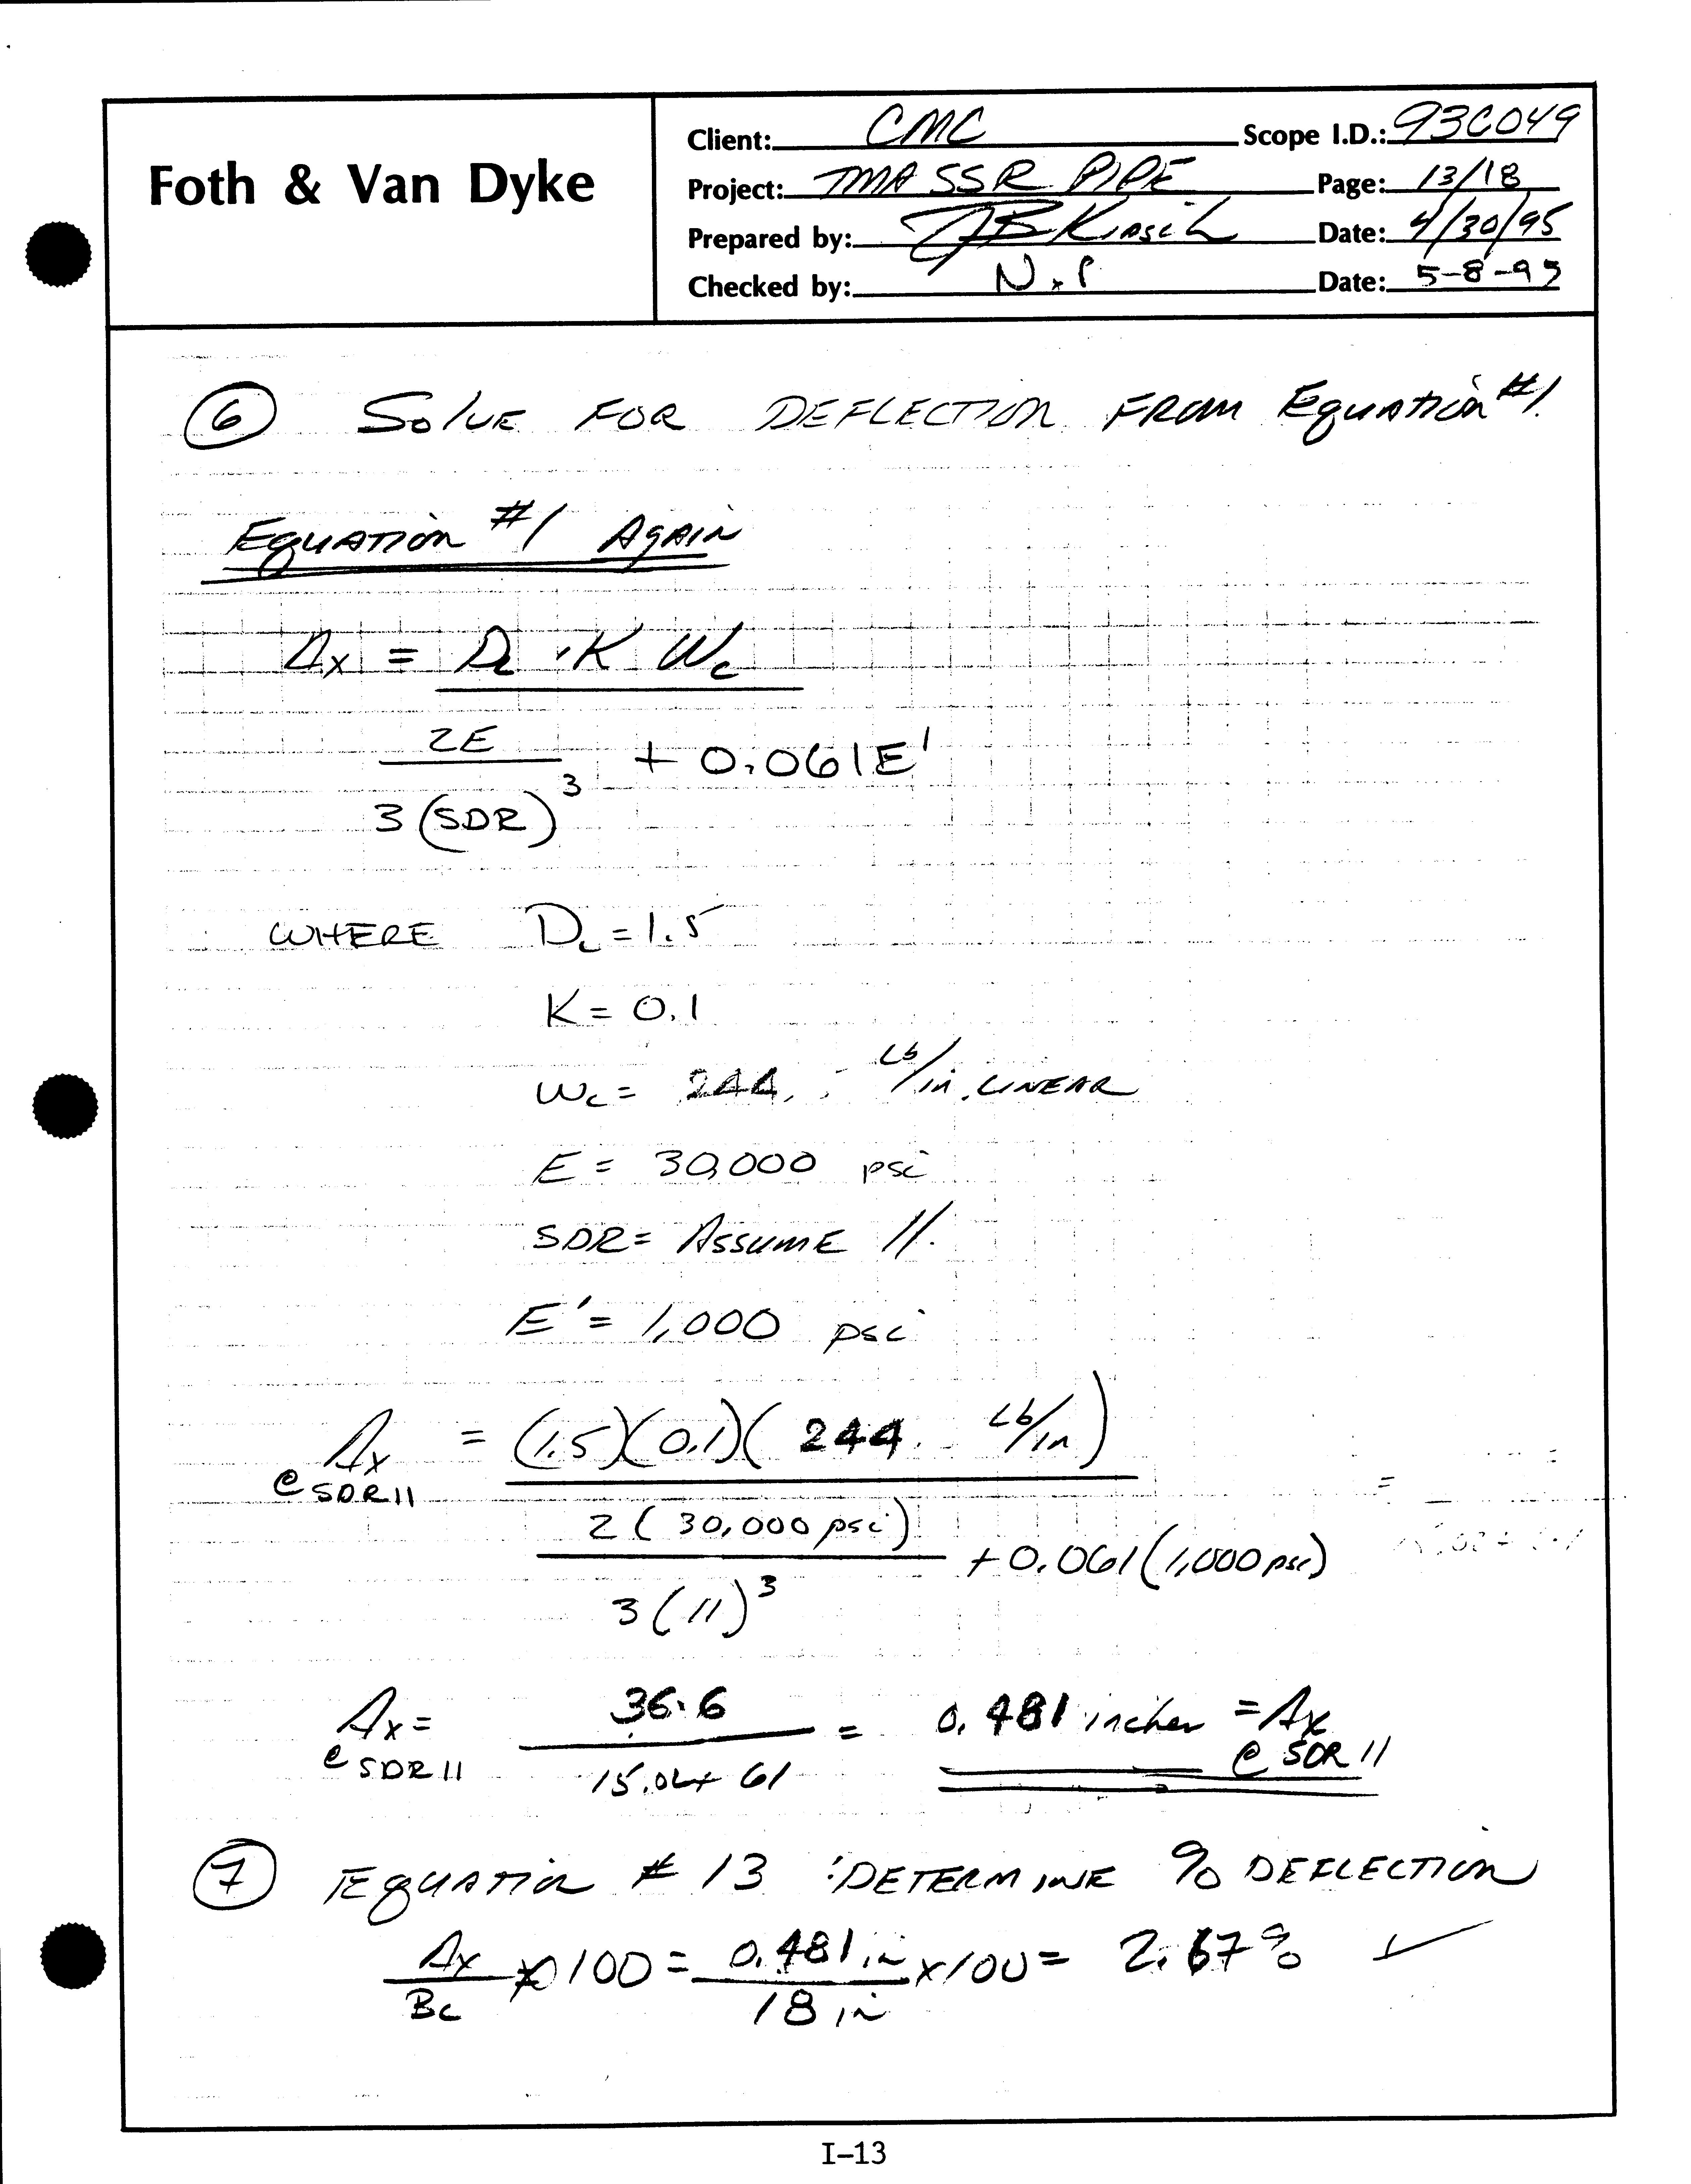 Foth & Van Dyke
Client: CMC Scope I.D.: 93C049
Project: TMA SSR PIPE Page: 13/18
Prepared by: JBKirsch Date: 4/30/95
Checked by: N.P Date: 5-8-95
⑥ SOLVE FOR DEFLECTION FROM EQUATION #1.
EQUATION #1 AGAIN
Δx = DL · K Wc
2E
3(SDR)³ + 0.061E'
WHERE DL = 1.5
K = 0.1
Wc = 244. Lb/in. LINEAR
E = 30,000 psi
SDR = ASSUME 11.
E' = 1,000 psi
Δx @ SDR11 = (1.5)(0.1)(244. Lb/in)
2(30,000 psi)
3(11)³ + 0.061(1,000 psi)
Δx = 36.6 = 0.481 inches = Δx
@ SDR11 15.02+ 61 @ SDR 11
⑦ EQUATION # 13 : DETERMINE % DEFLECTION
Δx x 100 = 0.481 in x 100 = 2.67% ✓
Bc 18 in
I-13